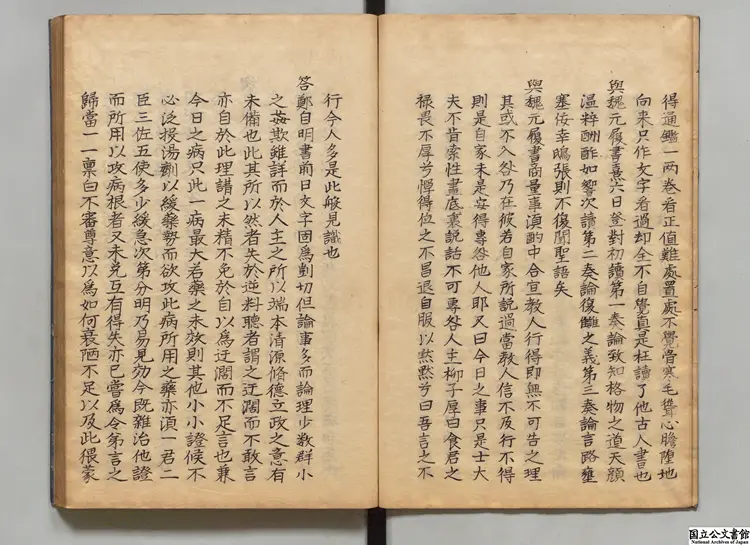 得通鑑一兩卷看正值難處置處不覺骨寒毛聳心膽墮地
向来只作文字看過却全不自覺真是枉讀了他古人書也
與魏元履書熹六日登對初讀第一奏論致知格物之道天顔
温粹酬酢如響次讀第二奏論復讎之義第三奏論言路壅
塞佞幸鴟張則不復聞聖語矣
與魏元履書商量事湏酌中合宜教人行得即無不可告之理
其或不入咎乃在彼若自家所説過當教人信不及行不得
則是自家未是安得專咎他人耶又曰今日之事只是士大
夫不肯索性盡底裏説話不可專咎人主柳子厚曰食君之
禄畏不厚兮悼得位之不昌退自服以黙黙兮曰吾言之不
行今人多是此般見識也
答鄭自明書前日文字固爲剴切但論事多而論理少數群小
之姦欺雖詳而於人主之所以端本清源脩德立政之意有
未備也此其所以然者失於逆料聽者謂之迂闊而不敢言
亦自於此理講之未精不免於自以爲迂闊而不足言也兼
今日之病只此一病最大若藥之未效則其他小小證候不
必泛投湯劑以緩藥勢而欲攻此病所用之藥亦湏一君二
臣三佐五使多少緩急次第分明乃易見効今既雜治他證
而所用以攻病根者又未免互有得失亦已嘗爲令弟言之
歸當一一禀白不審尊意以爲如何衰陋不足以及此偎蒙
国立公文書館
National Archives of Japan